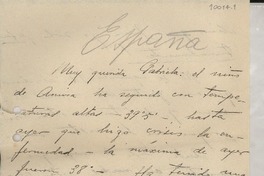 10014.1
España
Muy querida Gabriela: el niño
de Amira ha seguido con tempe-
raturas altas - 39'5 - hasta
ayer que hizo crisis la en-
fermedad - la máxima de ayer
fueron 38° - Ha tenido una